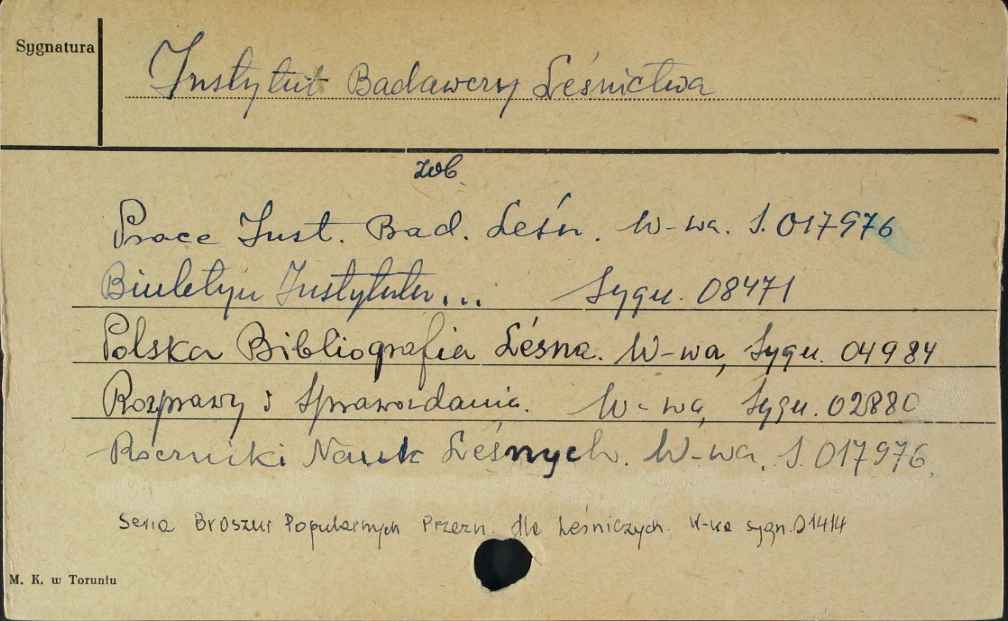 Sygnatura
Instytut Badawczy Leśnictwa
zob
Prace Inst. Bad. Leśn. W-wa. S. 017976
Biuletyn Instytutu... Sygn. 08471
Polska Bibliografia Leśna. W-wa, Sygn. 04984
Rozprawy i Sprawozdania. W-wa, Sygn. 02880
Roczniki Nauk Leśnych. W-wa. S. 017976.
Seria Broszur Popularnych Przezn. dla Leśniczych. W-wa sygn. 01414
M. K. w Toruniu